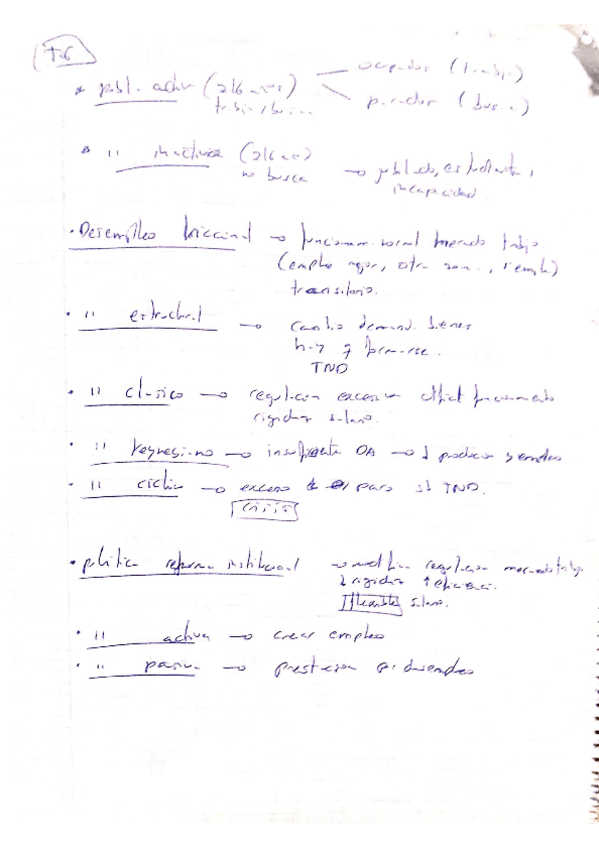 T.6
* pobl. activa (≥16 años) — ocupados (trabaja)
trabaja/busca... parados (busca)
" inactiva (≥16 años) → jubilado, estudiante,
no busca incapacidad
• Desempleo friccional → funcionam. normal mercado trabajo.
(empleo mejor, otra zona.,
transitorio.
• " estructural → cambio demand. bienes
hay q formarse.
TND
• " clásico → regulación excesiva dificil funcionamiento
rigidez salario.
• " keynesiano → insuficiente DA → ↓ producción y empleo
• " cíclico → exceso de paro s/ TND.
crisis
• política reforma institucional → regulación mercado trabajo
↓ rigidez ↑ eficiencia.
flexible salario.
• " activa → crear empleo
• " pasiva → prestación por desempleo